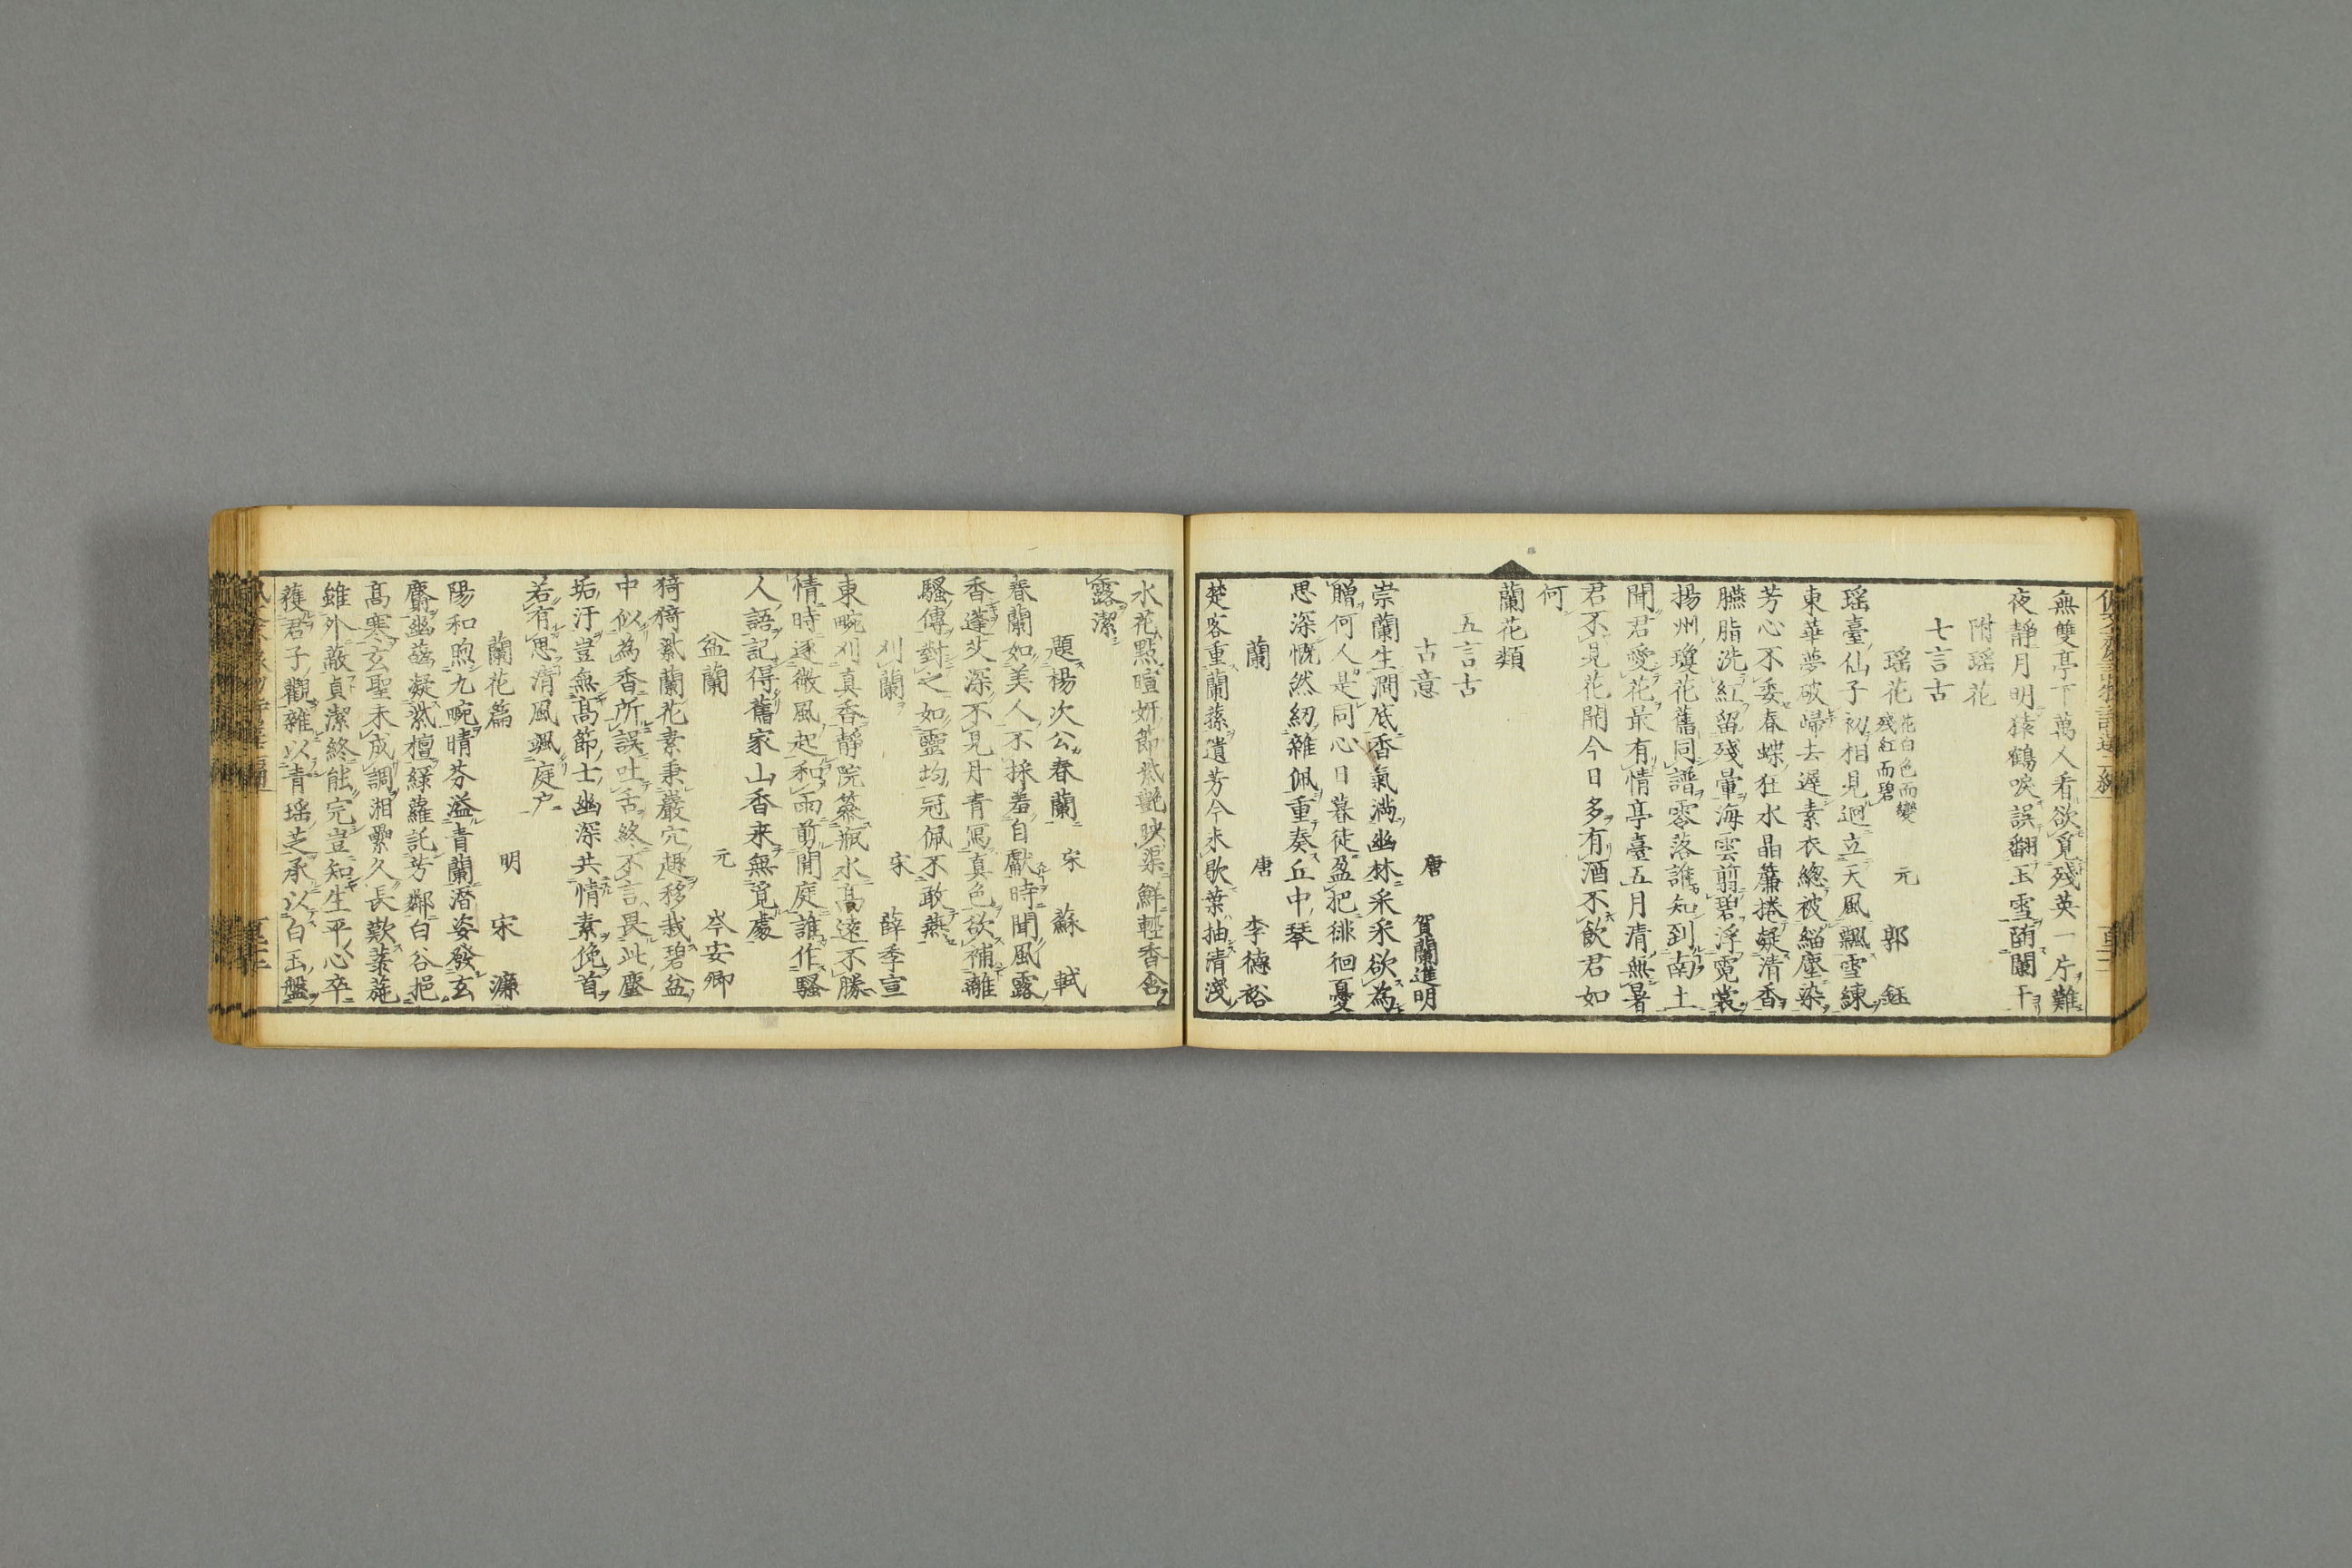 無雙亭下萬人看欲覓殘英一片難
夜靜月明猿鶴唳誤翻玉雪闌干
附瑶花
七言古
瑶花 花白色而變殘紅而碧 元 郭鈺
瑶臺仙子初相見迥立天風飄雪練
東華夢破歸去遲素衣總被緇塵染
芳心不委春蝶狂水晶簾捲凝清香
臙脂洗紅留殘暈海雲翦碧浮霓裳
揚州瓊花舊同譜零落誰知到南土
聞君愛花最有情亭臺五月清無暑
君不見花開今日多有酒不飲君如
何
蘭花類
五言古
古意 唐 賀蘭進明
崇蘭生澗底香氣滿幽林采采欲為
贈何人是同心日暮徒盈把徘徊憂
思深慨然紉雜佩重奏丘中琴
蘭 唐 李德裕
楚客重蘭蓀遺芳今未歇葉抽清淺
水花點暄妍節紫艷映渠鮮輕香含
露潔
題楊次公春蘭 宋 蘇軾
春蘭如美人不採羞自獻時聞風露
香蓬艾深不見丹青寫真色欲補離
騷傳對之如靈均冠佩不敢燕
刈蘭 宋 薛季宣
東畹刈真香靜院簪瓶水高遠不勝
情時逐微風起和雨剪閒庭誰作騷
人語記得舊家山香來無覓處
盆蘭 元 岑安卿
猗猗紫蘭花素秉巖穴趣移栽碧盆
中似為香所誤吐舌終不言畏此塵
垢汙豈無高節士幽深共情素俛首
若有思清風颯庭户
蘭花篇 明 宋濂
陽和煦九畹晴芬溢青蘭潛姿發玄
麝幽蘤凝紫檀綠蘿託芳鄰白谷挹
高寒玄聖未成調湘纍久長歎菉葹
雖外蔽貞潔終能完豈知生平心卒
獲君子觀雜以青瑶芝承以白玉盤